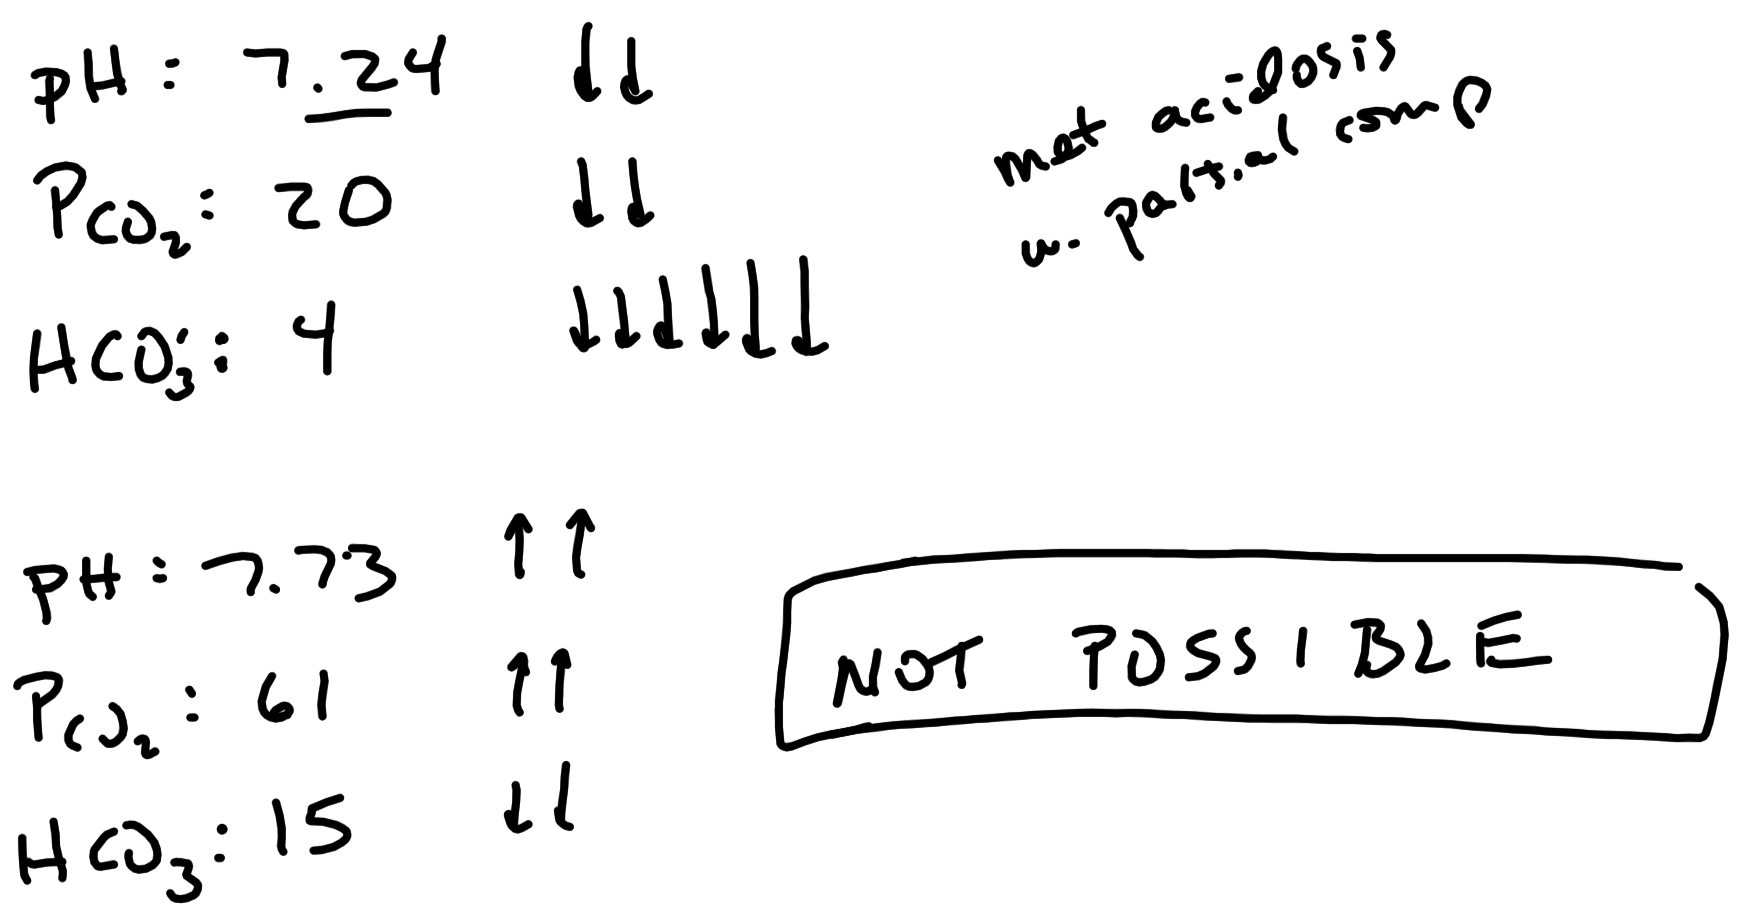 pH: 7.24 ↓↓
PCO₂: 20 ↓↓
HCO₃⁻: 4 ↓↓↓↓↓↓
met acidosis
w. partial comp
pH: 7.73 ↑↑
PCO₂: 61 ↑↑
HCO₃: 15 ↓↓
NOT POSSIBLE